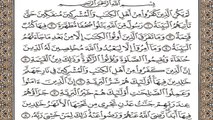 بِسْمِ اللَّهِ الرَّحْمَٰنِ الرَّحِيمِ
لَمْ يَكُنِ الَّذِينَ كَفَرُوا مِنْ أَهْلِ الْكِتَٰبِ وَالْمُشْرِكِينَ مُنفَكِّينَ حَتَّىٰ
تَأْتِيَهُمُ الْبَيِّنَةُ ۝ رَسُولٌ مِّنَ اللَّهِ يَتْلُوا صُحُفًا مُّطَهَّرَةً ۝ فِيهَا
كُتُبٌ قَيِّمَةٌ ۝ وَمَا تَفَرَّقَ الَّذِينَ أُوتُوا الْكِتَٰبَ إِلَّا مِنۢ بَعْدِ مَا جَآءَتْهُمُ
الْبَيِّنَةُ ۝ وَمَآ أُمِرُوٓا إِلَّا لِيَعْبُدُوا اللَّهَ مُخْلِصِينَ لَهُ الدِّينَ حُنَفَآءَ
وَيُقِيمُوا الصَّلَوٰةَ وَيُؤْتُوا الزَّكَوٰةَ وَذَٰلِكَ دِينُ الْقَيِّمَةِ ۝
إِنَّ الَّذِينَ كَفَرُوا مِنْ أَهْلِ الْكِتَٰبِ وَالْمُشْرِكِينَ فِي نَارِ جَهَنَّمَ
خَٰلِدِينَ فِيهَآ أُولَٰٓئِكَ هُمْ شَرُّ الْبَرِيَّةِ ۝ إِنَّ الَّذِينَ ءَامَنُوا وَعَمِلُوا
الصَّٰلِحَٰتِ أُولَٰٓئِكَ هُمْ خَيْرُ الْبَرِيَّةِ ۝ جَزَآؤُهُمْ عِندَ
رَبِّهِمْ جَنَّٰتُ عَدْنٍ تَجْرِي مِن تَحْتِهَا الْأَنْهَٰرُ خَٰلِدِينَ
فِيهَآ أَبَدًا رَّضِيَ اللَّهُ عَنْهُمْ وَرَضُوا عَنْهُ ذَٰلِكَ لِمَنْ خَشِيَ رَبَّهُۥ ۝